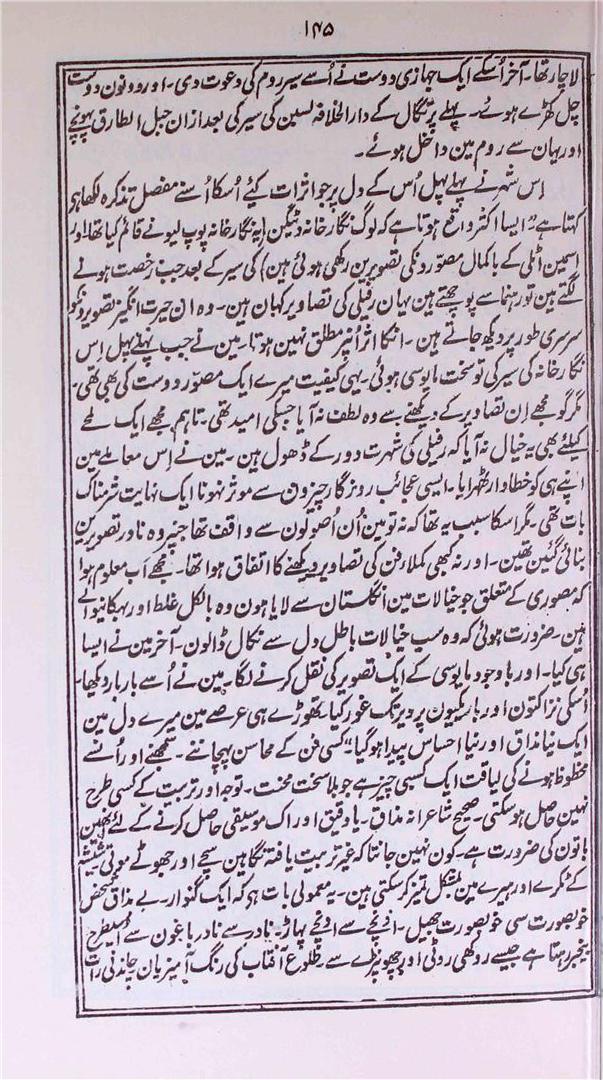 ۱۴۵
لاچار تھا۔ آخر اُسکے ایک جہازی دوست نے اُسے سیر روم کی دعوت دی۔ اور دونون دوست
چل کھڑے ہوئے۔ پہلے پرتگال کے دارالخلافہ لسبن کی سیر کی بعد ازان جبل الطارق پہونچے
اور یہان سے روم مین داخل ہوئے۔
اِس شہر نے پہلے پہل اُس کے دل پر جو اثرات کیے اُسکا اُسنے مفصل تذکرہ لکھا ہی
کہتا ہے ”ایسا اکثر واقع ہوتا ہے کہ لوگ نگارخانہ وٹیکن (یہ نگارخانہ پوپ لیو نے قائم کیا تھا اور
اسمین اٹلی کے باکمال مصورونکی تصویرین رکھی ہوئی ہین) کی سیر کے بعد جب رخصت ہونے
لگتے ہین تو رہنما سے پوچھتے ہین یہان رفیلی کی تصاویر کہان ہین۔ وہ ان حیرت انگیز تصویرونکو
سرسری طور پر دیکھ جاتے ہین۔ انکا اثر اُنپر مطلق نہین ہوتا۔ مین نے جب پہلے پہل اِس
نگارخانہ کی سیر کی تو سخت مایوسی ہوئی۔ یہی کیفیت میرے ایک مصور دوست کی بھی تھی۔
مگر گو مجھے اِن تصاویر کے دیکھنے سے وہ لطف نہ آیا جسکی امید تھی۔ تاہم مجھے ایک لمحے
کیلئے بھی یہ خیال نہ آیا کہ رفیلی کی شہرت دور کے ڈھول ہین۔ مین نے اِس معاملے مین
اپنے ہی کو خطاوار ٹھہرایا۔ ایسی عجائب روزگار چیزون سے موثر نہونا ایک نہایت شرمناک
بات تھی۔ مگر اسکا سبب یہ تھا کہ نہ تو مین اُن اُصولون سے واقف تھا جنپر وہ نادر تصویرین
بنائی گئین تھین۔ اور نہ کبھی کملاء فن کی تصاویر دیکھنے کا اتفاق ہوا تھا۔ مجھے اَب معلوم ہوا
کہ مصوری کے متعلق جو خیالات مین انگلستان سے لایا ہون وہ بالکل غلط اور بہکانیوالے
ہین۔ ضرورت ہوئی کہ وہ سب خیالات باطل دل سے نکال ڈالون۔ آخر مین نے ایسا
ہی کیا۔ اور باوجود مایوسی کے ایک تصویر کی نقل کرنے لگا۔ مین نے اُسے بار بار دیکھا۔
اُسکی نزاکتون اور باریکیون پر دیر تک غور کیا۔ تھوڑے ہی عرصے مین میرے دل مین
ایک نیا مذاق اور نیا احساس پیدا ہو گیا“ کسی فن کے محاسن پہچاننے۔ سمجھنے اور اُسے
محظوظ ہونے کی لیاقت ایک کسبی چیز ہے جو بلا سخت محنت۔ توجہ اور تربیت کے کسی طرح
نہین حاصل ہو سکتی۔ صحیح شاعرانہ مذاق۔ یا دقیق ادراک موسیقی حاصل کرنے کے لئے بھی انہین
باتون کی ضرورت ہے۔ کون نہین جانتا کہ غیر تربیت یافتہ نگاہین سچے اور جھوٹے موتی شیشہ
کے ٹکڑے اور ہیرے مین بمشکل تمیز کر سکتی ہین۔ یہ معمولی بات ہی کہ ایک گنوار۔ بے مذاق شخص
خوبصورت سی خوبصورت جھیل۔ اونچے سے اونچے پہاڑ۔ نادر سے نادر باغون سے اُسیطرح
بیخبر رہتا ہے جیسے روکھی روٹی اور جھونپڑے سے۔ طلوع آفتاب کی رنگ آمیزیان چاندنی رات